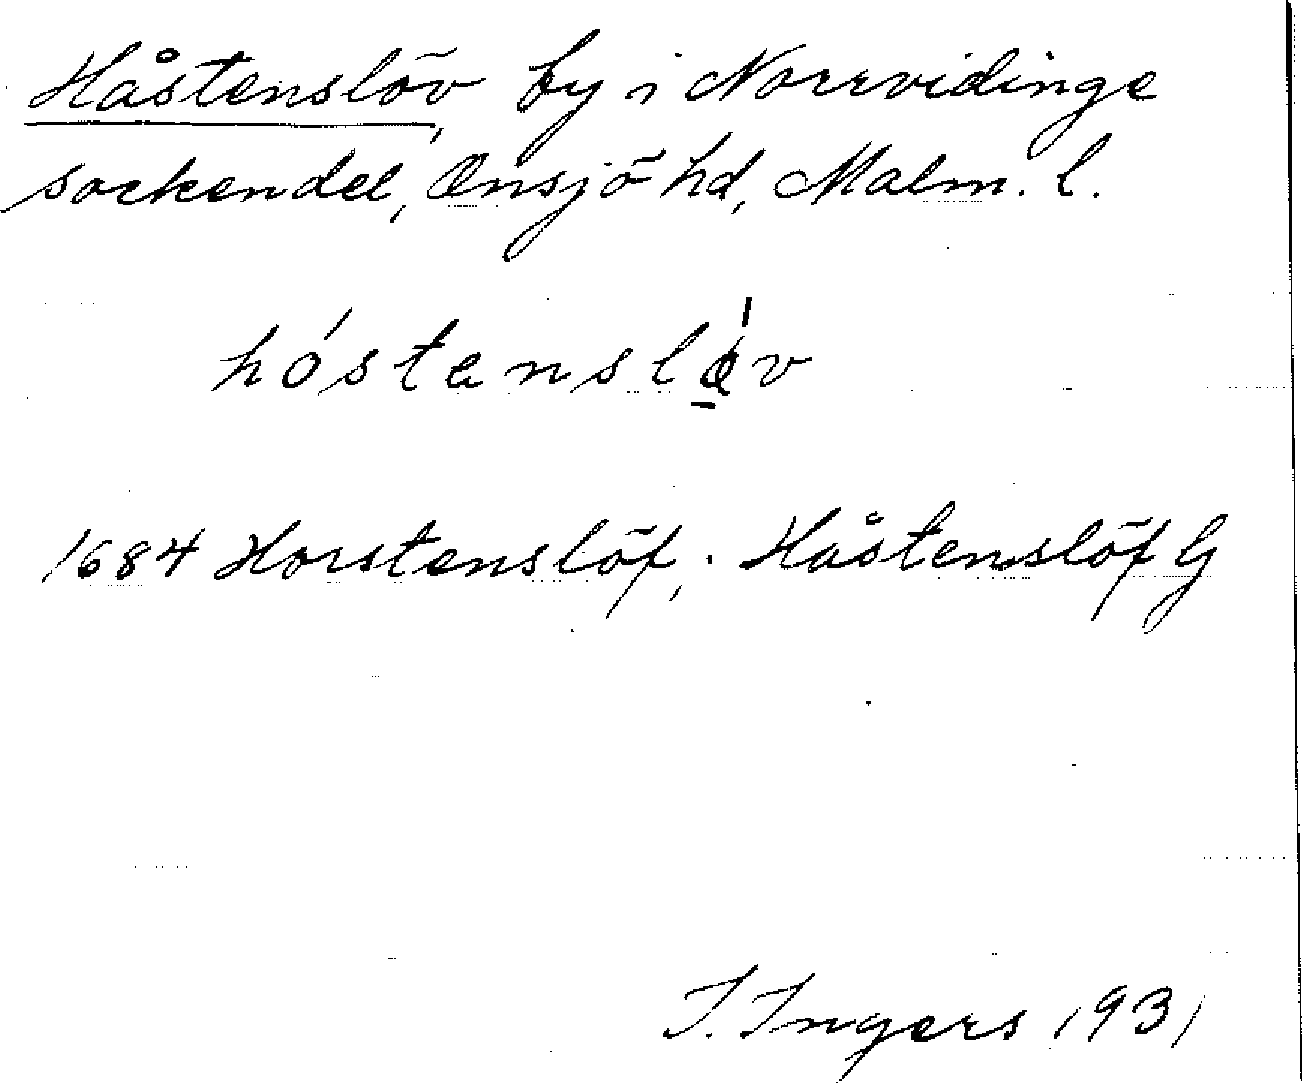 Håstenslöv, by i Norrvidinge
sockendel, Onsjö hd, Malm. l.
hóstenslǫ́v
1684 Horstenslöf,. Håstenslöf G
I. Ingers 1931